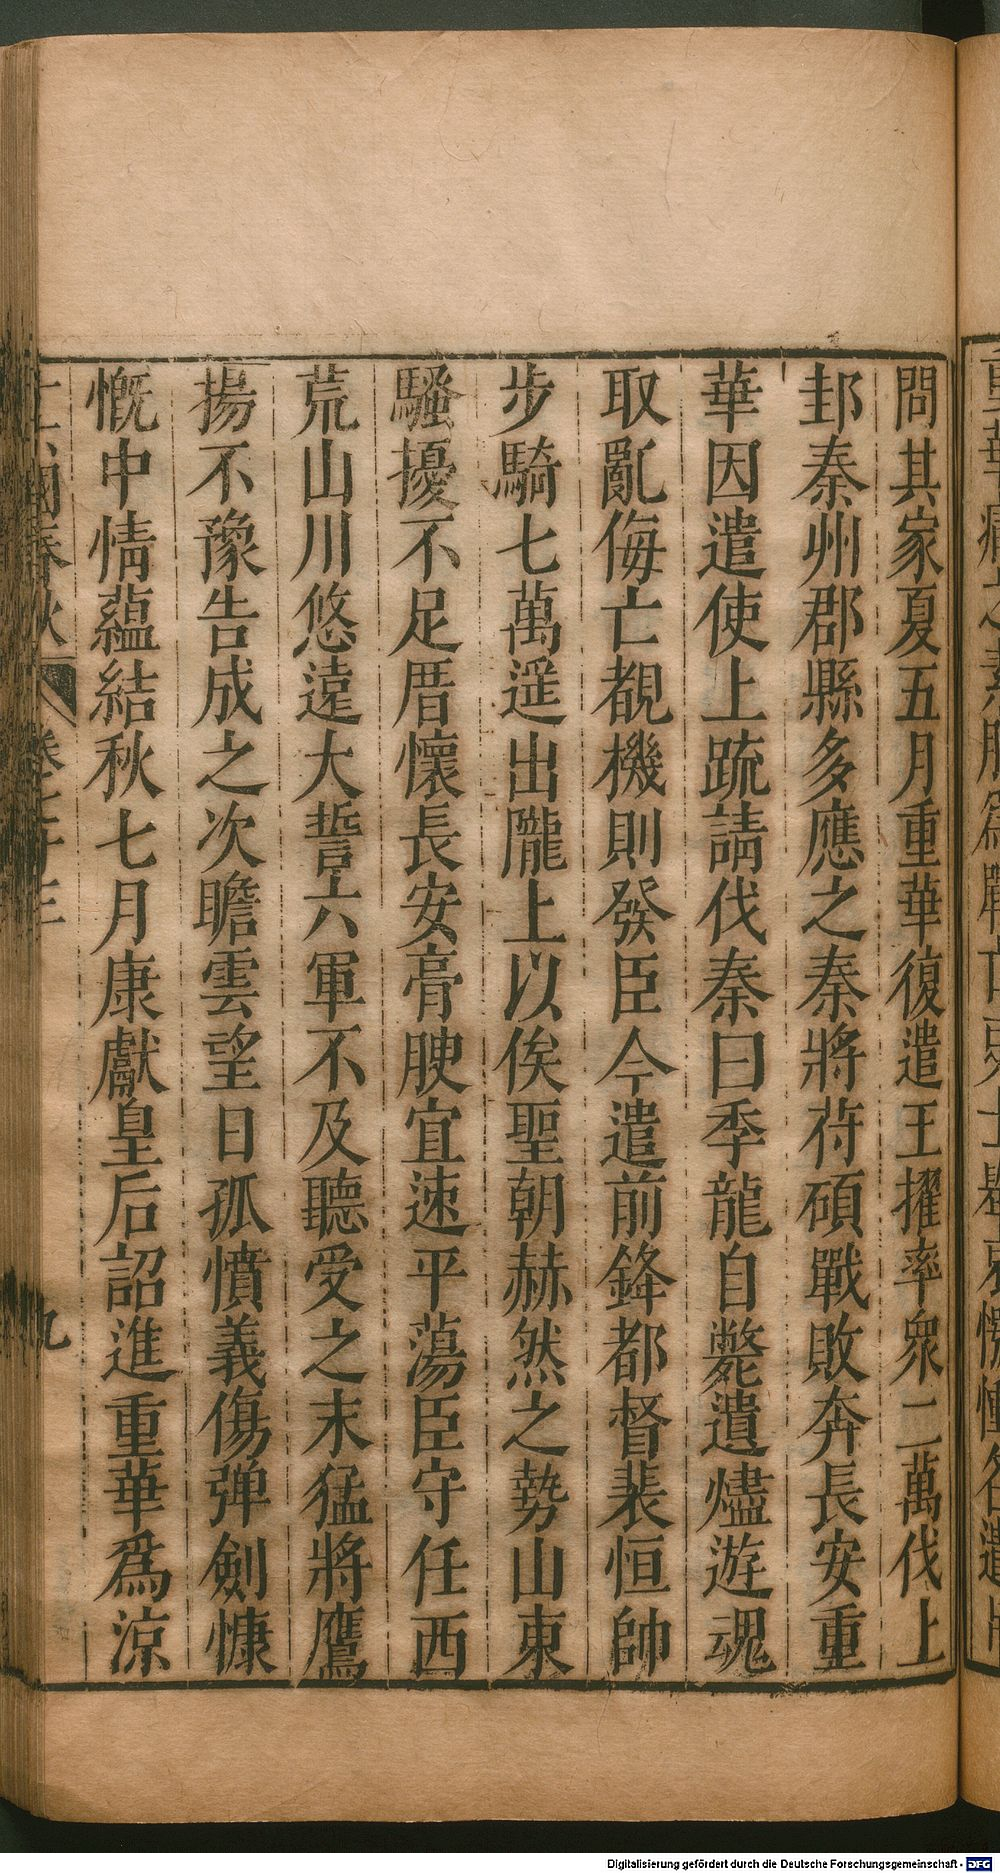 問其家夏五月重華復遣王擢率衆二萬伐上
邽秦州郡縣多應之秦將苻碩戰敗奔長安重
華因遣使上疏請伐秦曰季龍自斃遺燼遊魂
取亂侮亡覩機則發臣今遣前鋒都督裴恒帥
步騎七萬遥出隴上以俟聖朝赫然之勢山東
騷擾不足厝懷長安膏腴宜速平蕩臣守任西
荒山川悠遠大誓六軍不及聽受之末猛將鷹
揚不豫告成之次瞻雲望日孤憤義傷弹劍慷
慨中情蘊結秋七月康獻皇后詔進重華爲涼
國春秋
九
Digitalisierung gefördert durch die Deutsche Forschungsgemeinschaft - DFG